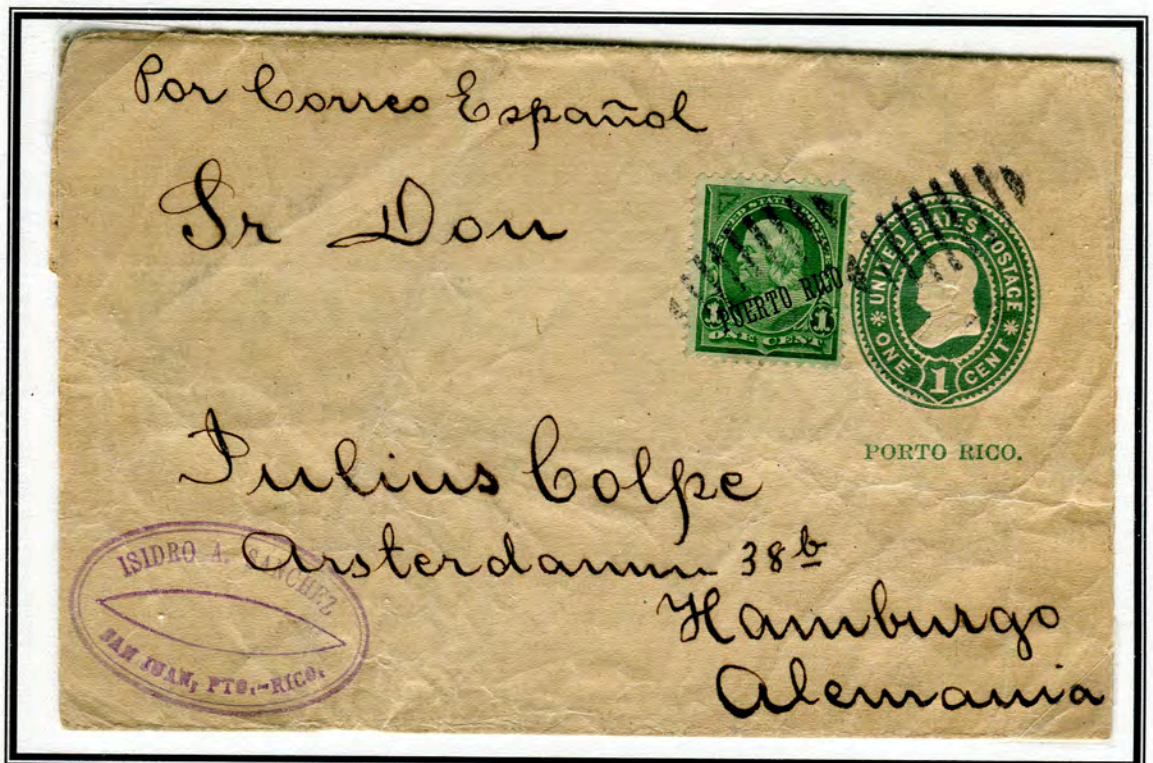 Por Correo Español
Sr Don
UNITED STATES POSTAGE
PUERTO RICO
1 1
ONE CENT
UNITED STATES POSTAGE
ONE 1 CENT
PORTO RICO.
Julius Colpe
Arsterdamm 38b
Hamburgo
Alemania
ISIDRO A. SANCHEZ
SAN JUAN, PTO.-RICO.